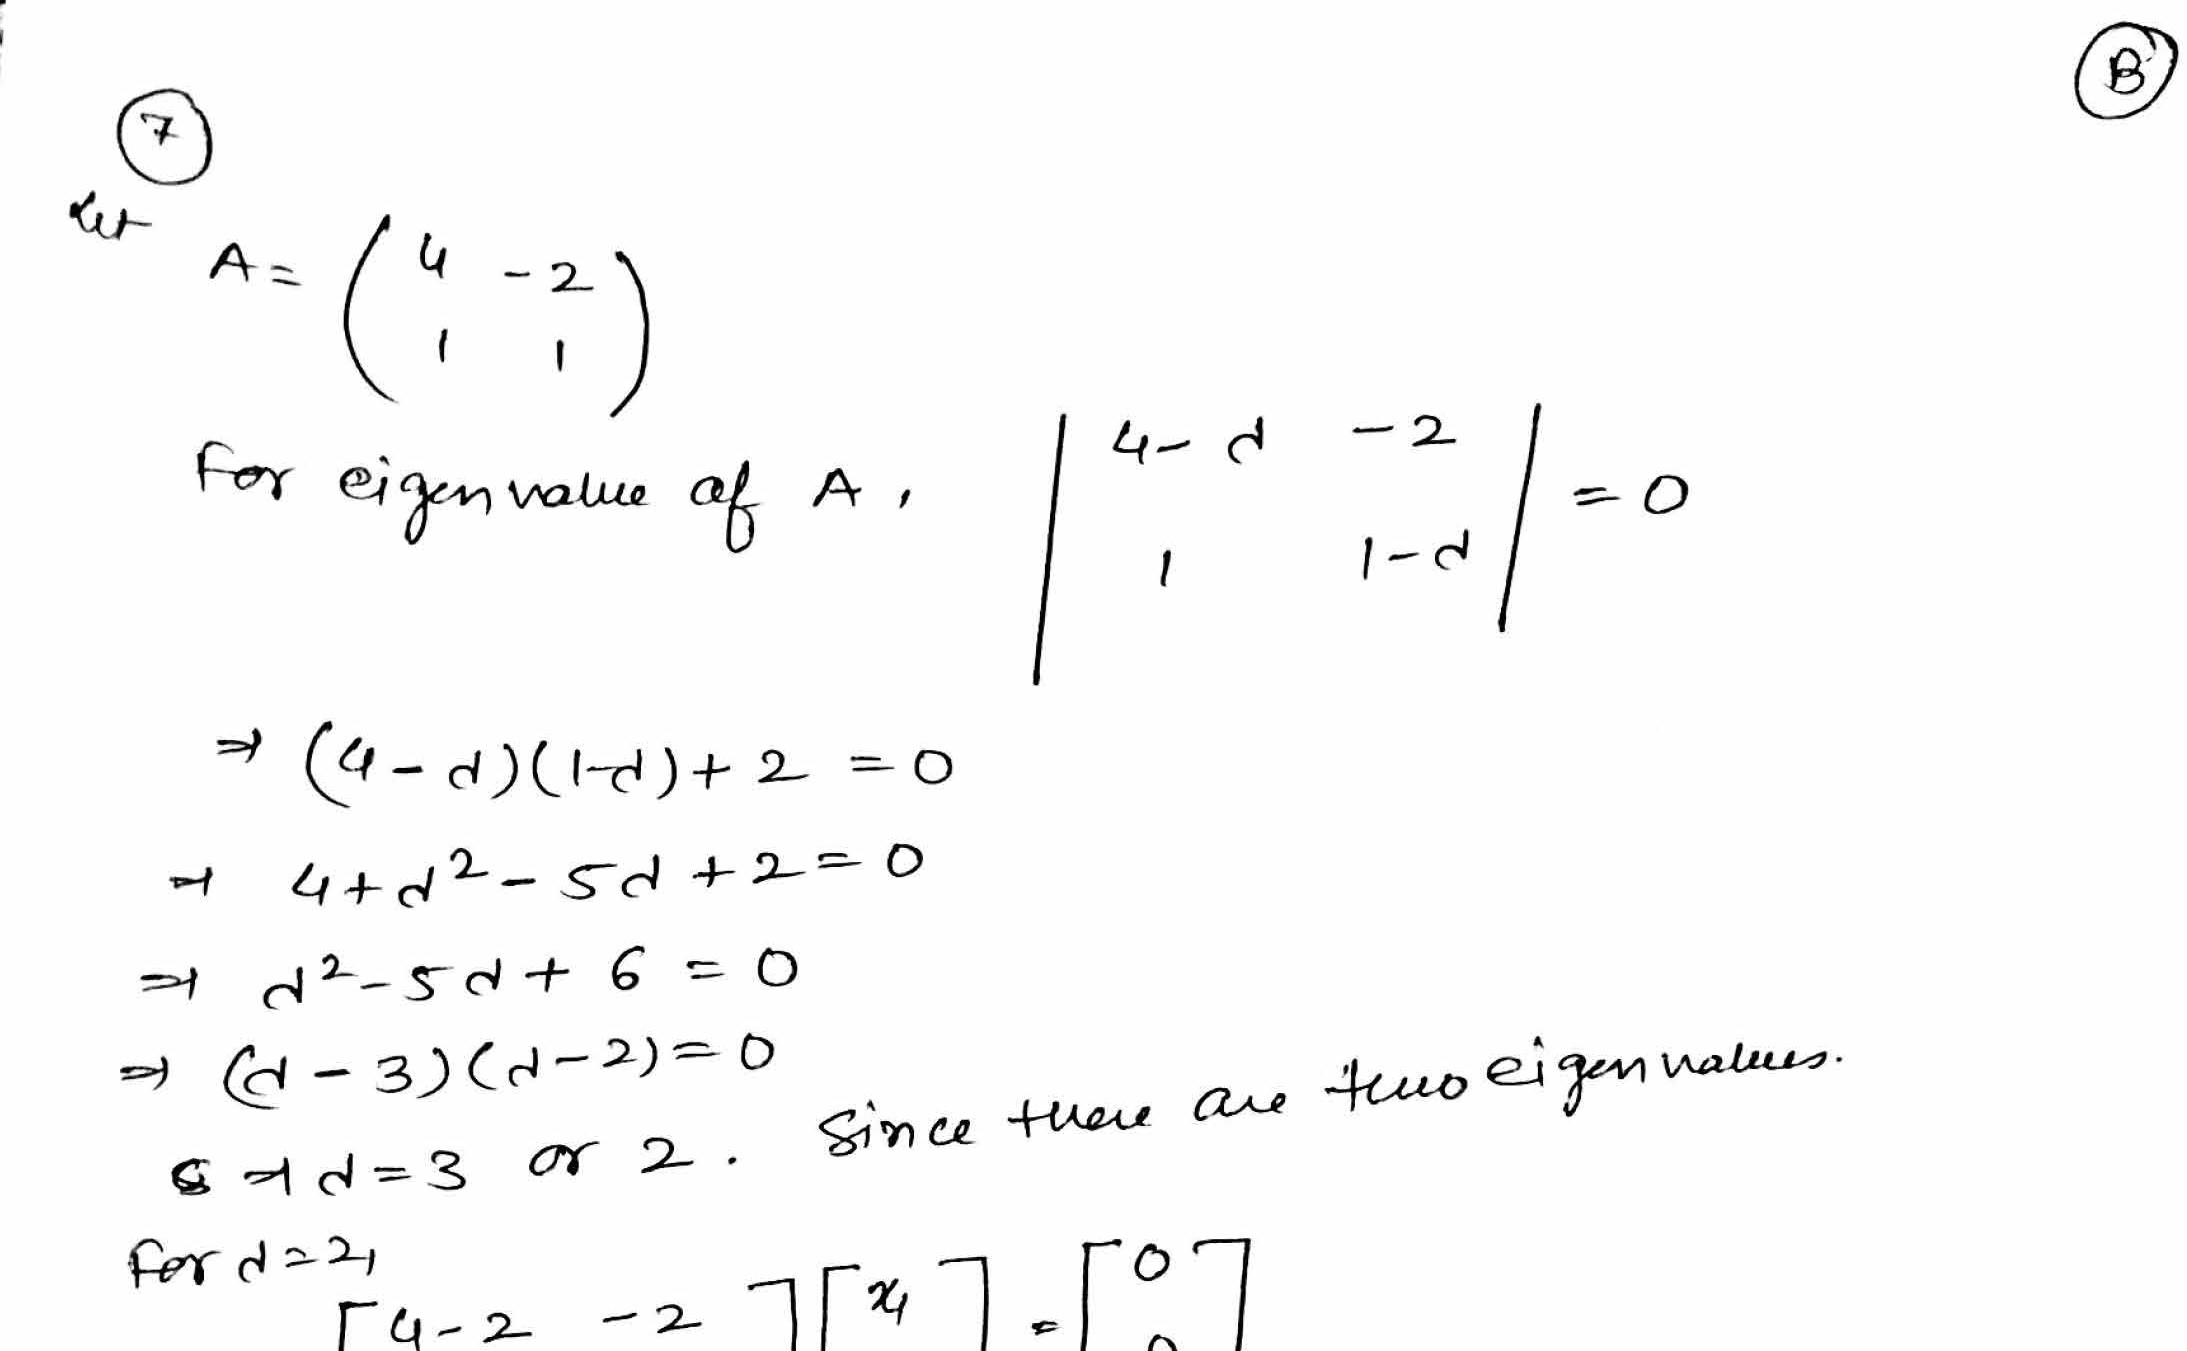 B
7
Let
A = ( 4 -2
1 1 )
For eigen value of A, | 4-d -2
1 1-d | = 0
⇒ (4-d)(1-d)+2 = 0
⇒ 4+d²-5d+2=0
⇒ d²-5d+6 = 0
⇒ (d-3)(d-2)=0
⇒ d=3 or 2. Since there are two eigen values.
For d=2,
[ 4-2 -2 ] [ x₁ ] = [ 0 ]
0